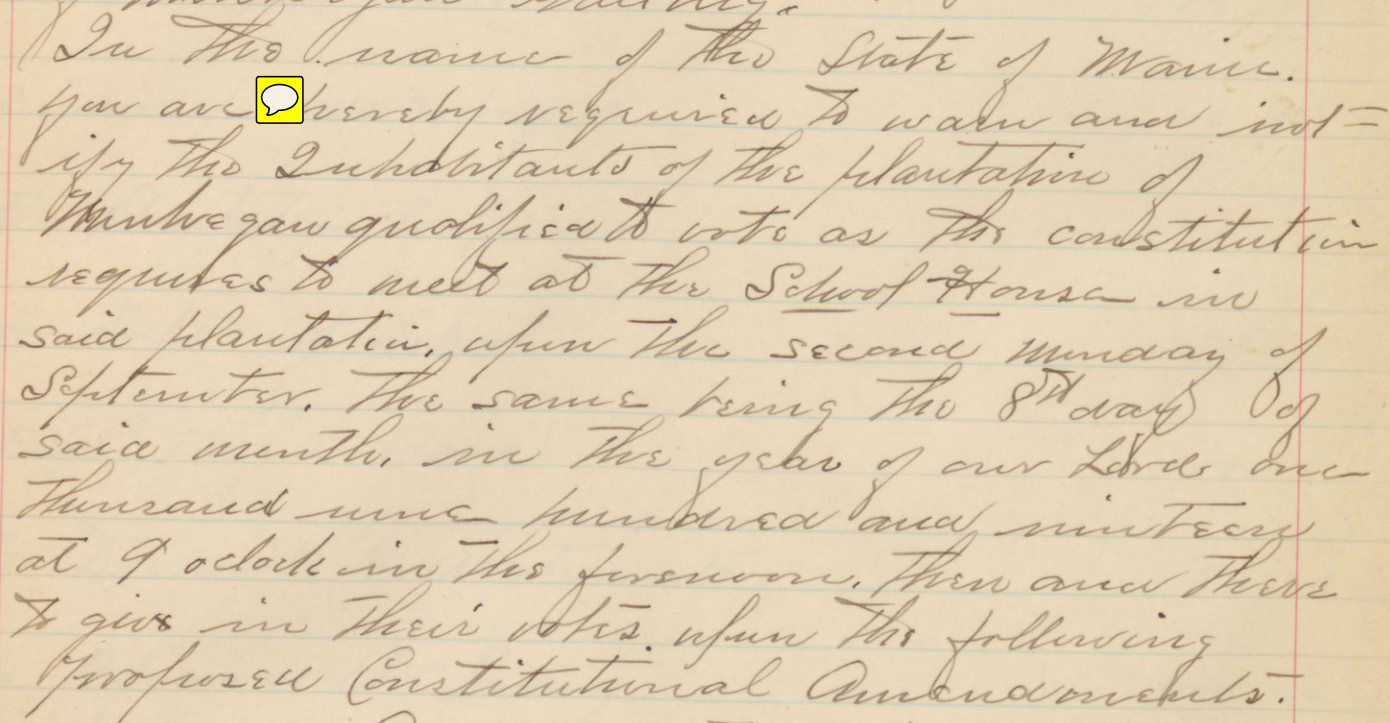 In the name of the State of Maine.
you are hereby required to warn and not=
ify the Inhabitants of the plantation of
Monhegan qualified to vote as the constitution
requires to meet at the School House in
said plantation, upon the second Monday of
September. the same being the 8TH day of
said month, in the year of our Lord one
thousand nine hundred and nineteen
at 9 oclock in the forenoon. then and there
to give in their votes upon the following
proposed Constitutional Amendments.